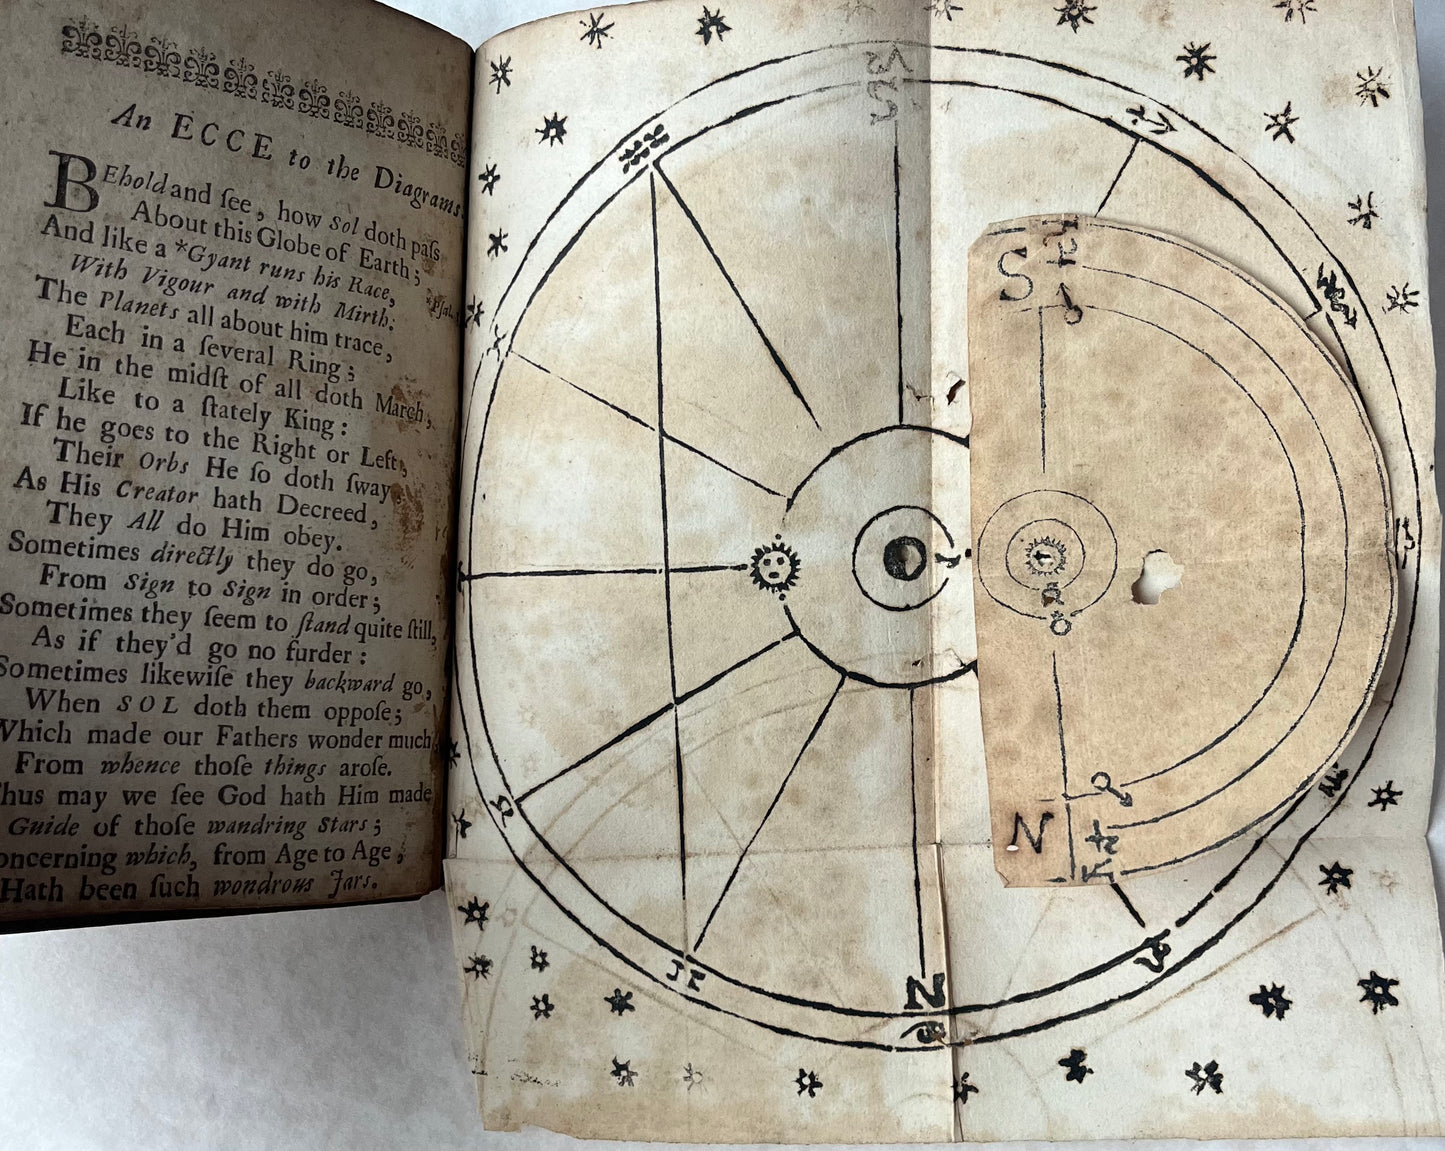 An ECCE to the Diagrams.
BEhold and ſee, how Sol doth paſs
About this Globe of Earth;
And like a *Gyant runs his Race,
With Vigour and with Mirth: *Pſal.
The Planets all about him trace,
Each in a ſeveral Ring;
He in the midſt of all doth March,
Like to a ſtately King:
If he goes to the Right or Left,
Their Orbs He ſo doth ſway,
As His Creator hath Decreed,
They All do Him obey.
Sometimes directly they do go,
From Sign to Sign in order;
Sometimes they ſeem to ſtand quite ſtill,
As if they'd go no furder:
Sometimes likewiſe they backward go,
When SOL doth them oppoſe;
Which made our Fathers wonder much,
From whence thoſe things aroſe.
Thus may we ſee God hath Him made
Guide of thoſe wandring Stars;
Concerning which, from Age to Age,
Hath been ſuch wondrous Jars.
S
N